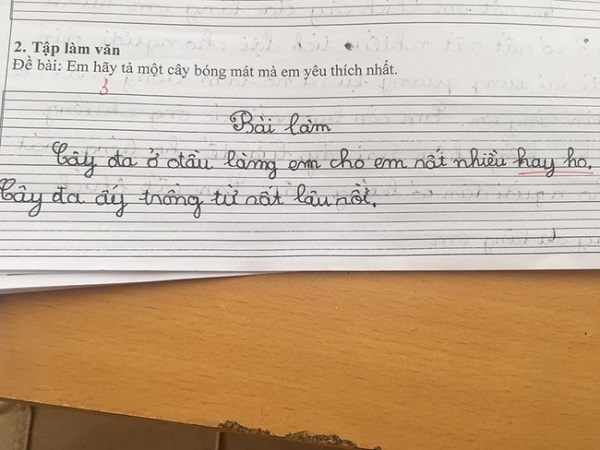 2. Tập làm văn
Đề bài: Em hãy tả một cây bóng mát mà em yêu thích nhất.
3
Bài làm
Cây đa ở đầu làng em cho em rất nhiều hay ho.
Cây đa ấy trồng từ rất lâu rồi.